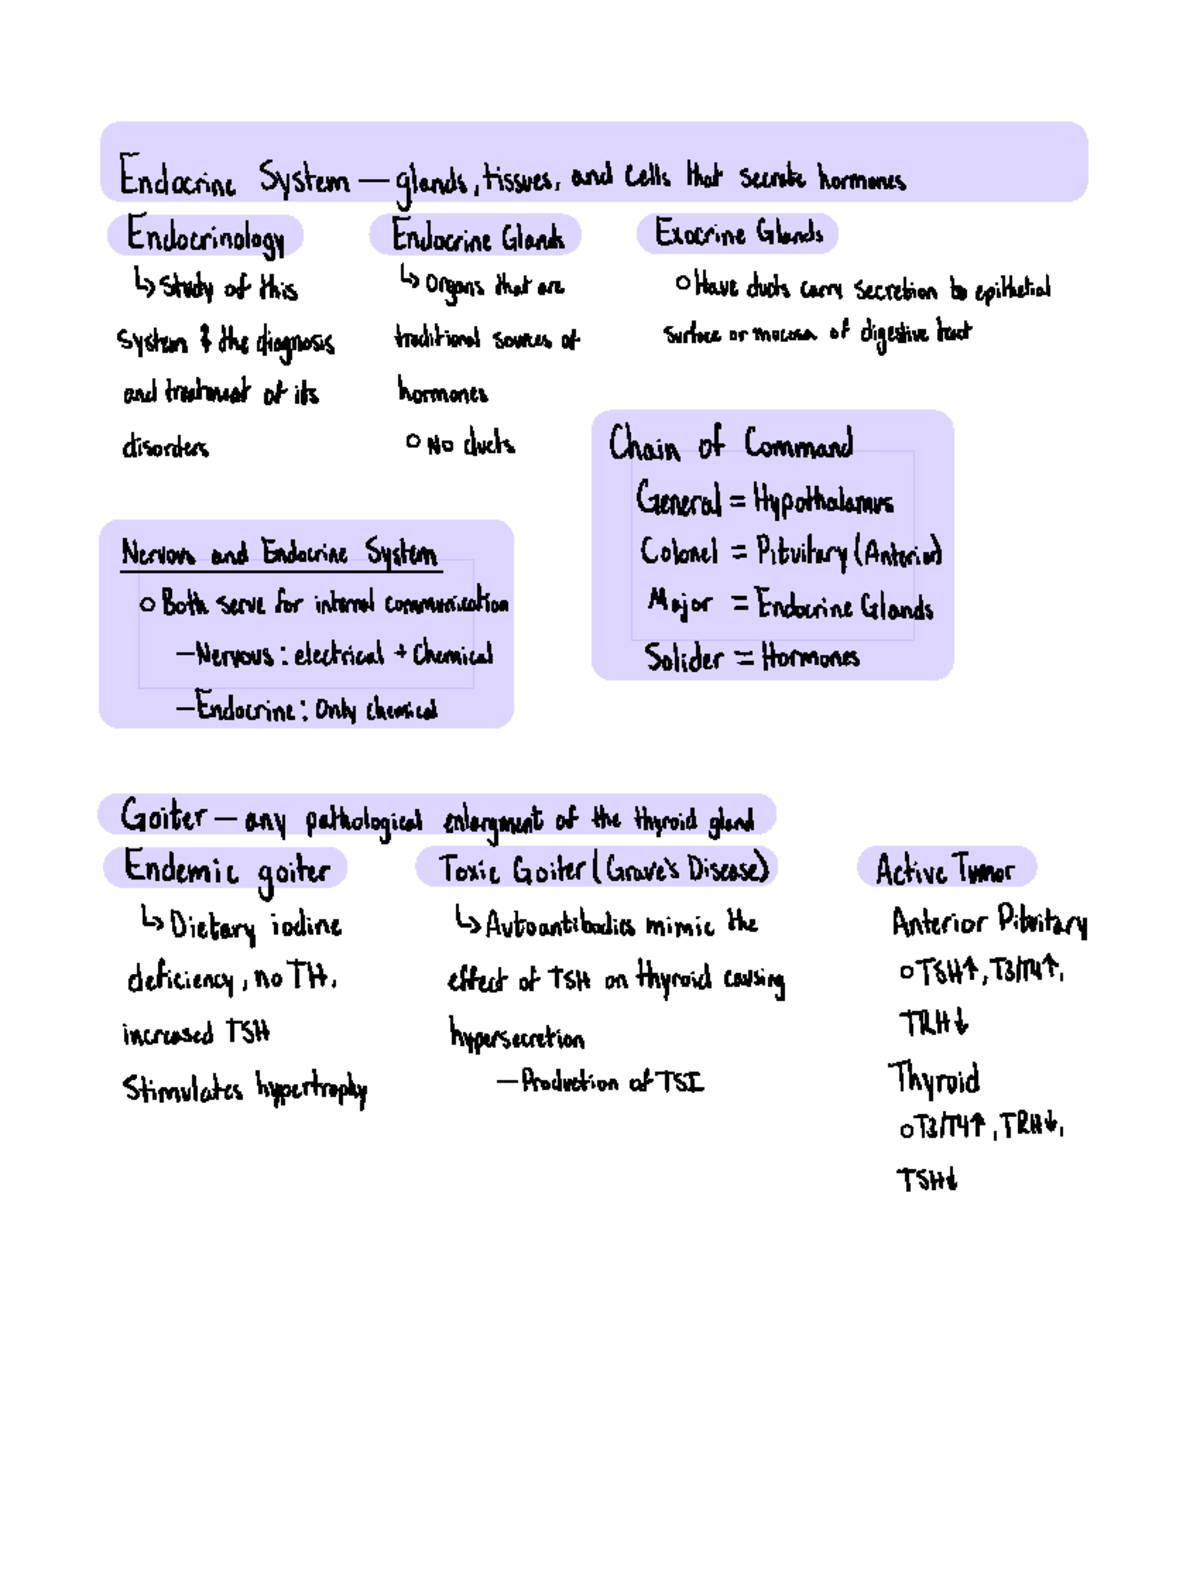 Endocrine System — glands, tissues, and cells that secrete hormones
Endocrinology
↳ Study of this
system & the diagnosis
and treatment of its
disorders
Endocrine Glands
↳ Organs that are
traditional sources of
hormones
○ No ducts
Exocrine Glands
○ Have ducts carry secretion to epithelial
surface or mucosa of digestive tract
Chain of Command
General = Hypothalamus
Colonel = Pituitary (Anterior)
Major = Endocrine Glands
Solider = Hormones
Nervous and Endocrine System
○ Both serve for internal communication
— Nervous: electrical + Chemical
— Endocrine: Only chemical
Goiter — any pathological enlargment of the thyroid gland
Endemic goiter
↳ Dietary iodine
deficiency, no TH,
increased TSH
Stimulates hypertrophy
Toxic Goiter (Grave's Disease)
↳ Autoantibodies mimic the
effect of TSH on thyroid causing
hypersecretion
— Production of TSI
Active Tumor
Anterior Pituitary
○ TSH↑, T3/T4↑,
TRH↓
Thyroid
○ T3/T4↑, TRH↓,
TSH↓